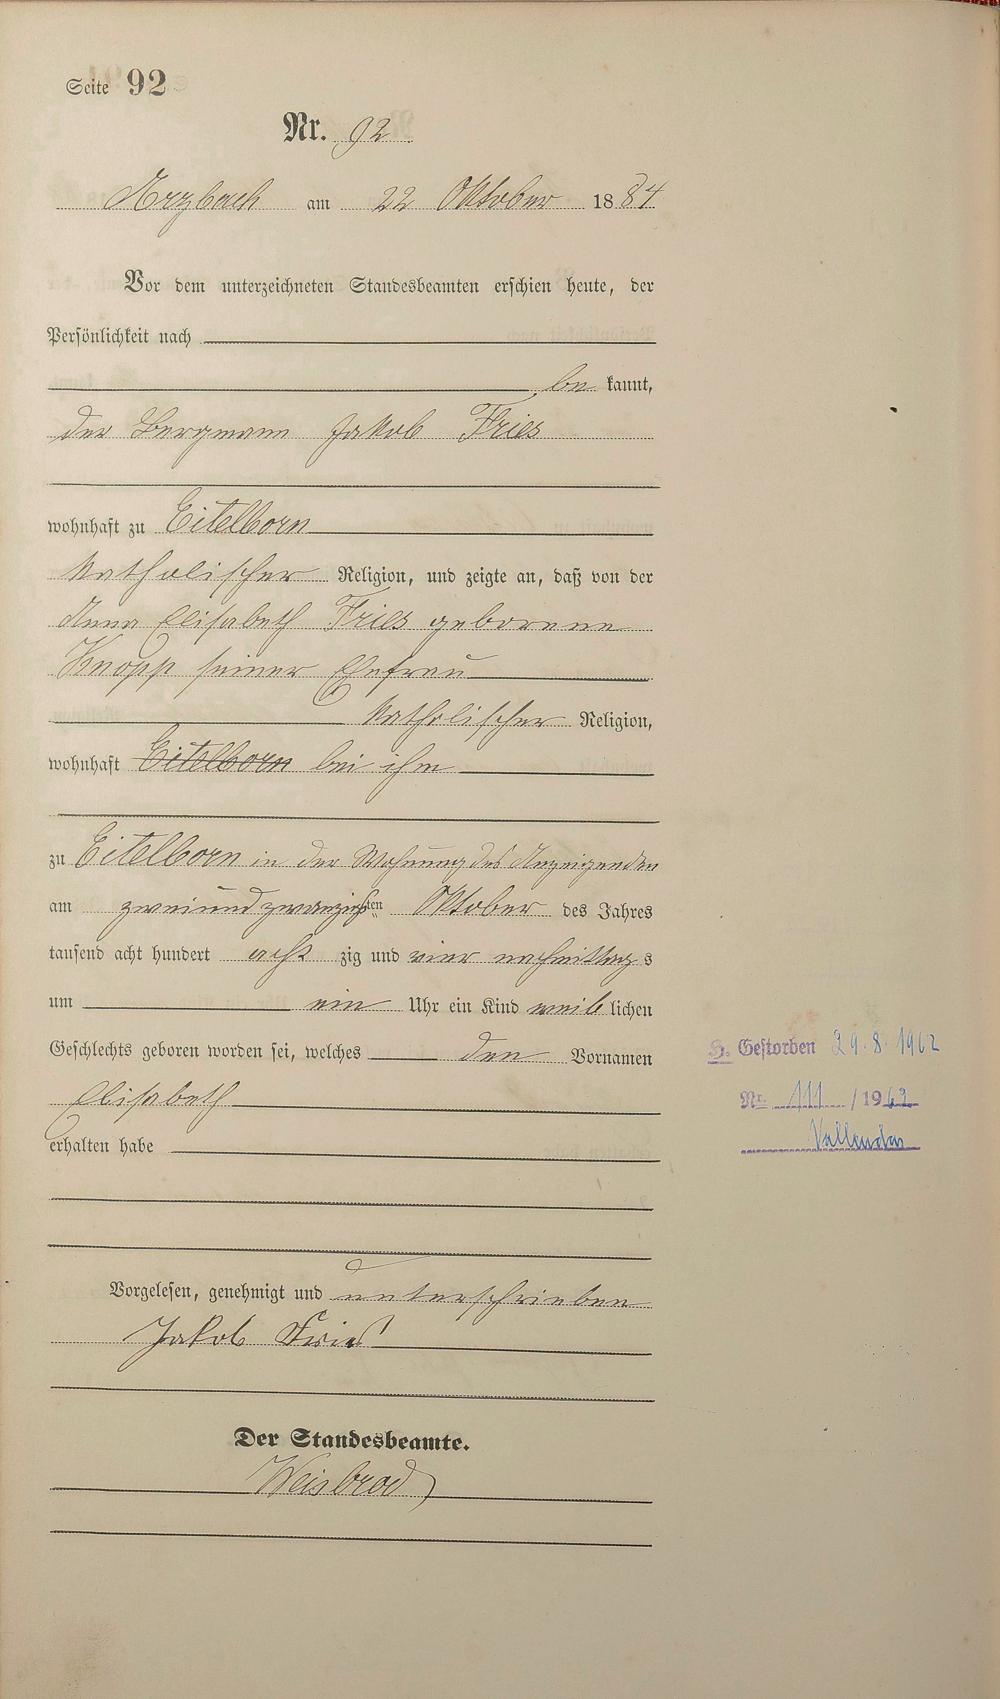 Seite 92
Nr. 92
Arzbach am 22 Oktober 1884
Vor dem unterzeichneten Standesbeamten erschien heute, der
Persönlichkeit nach
be kannt,
der Bergmann Jakob Fries
wohnhaft zu Eitelborn
katholischer Religion, und zeigte an, daß von der
Anna Elisabeth Fries geborene
Knopp seiner Ehefrau
katholischer Religion,
wohnhaft Eitelborn bei ihm
zu Eitelborn in der Wohnung des Anzeigenden
am zweiundzwanzigsten Oktober des Jahres
tausend acht hundert acht zig und vier nachmittags
um ein Uhr ein Kind weib lichen
Geschlechts geboren worden sei, welches den Vornamen
Elisabeth
erhalten habe
Vorgelesen, genehmigt und unterschrieben
Jakob Fries
Der Standesbeamte.
Weisbrod
Gestorben 29.8.1962
Nr. 111 /1962
Vallendar